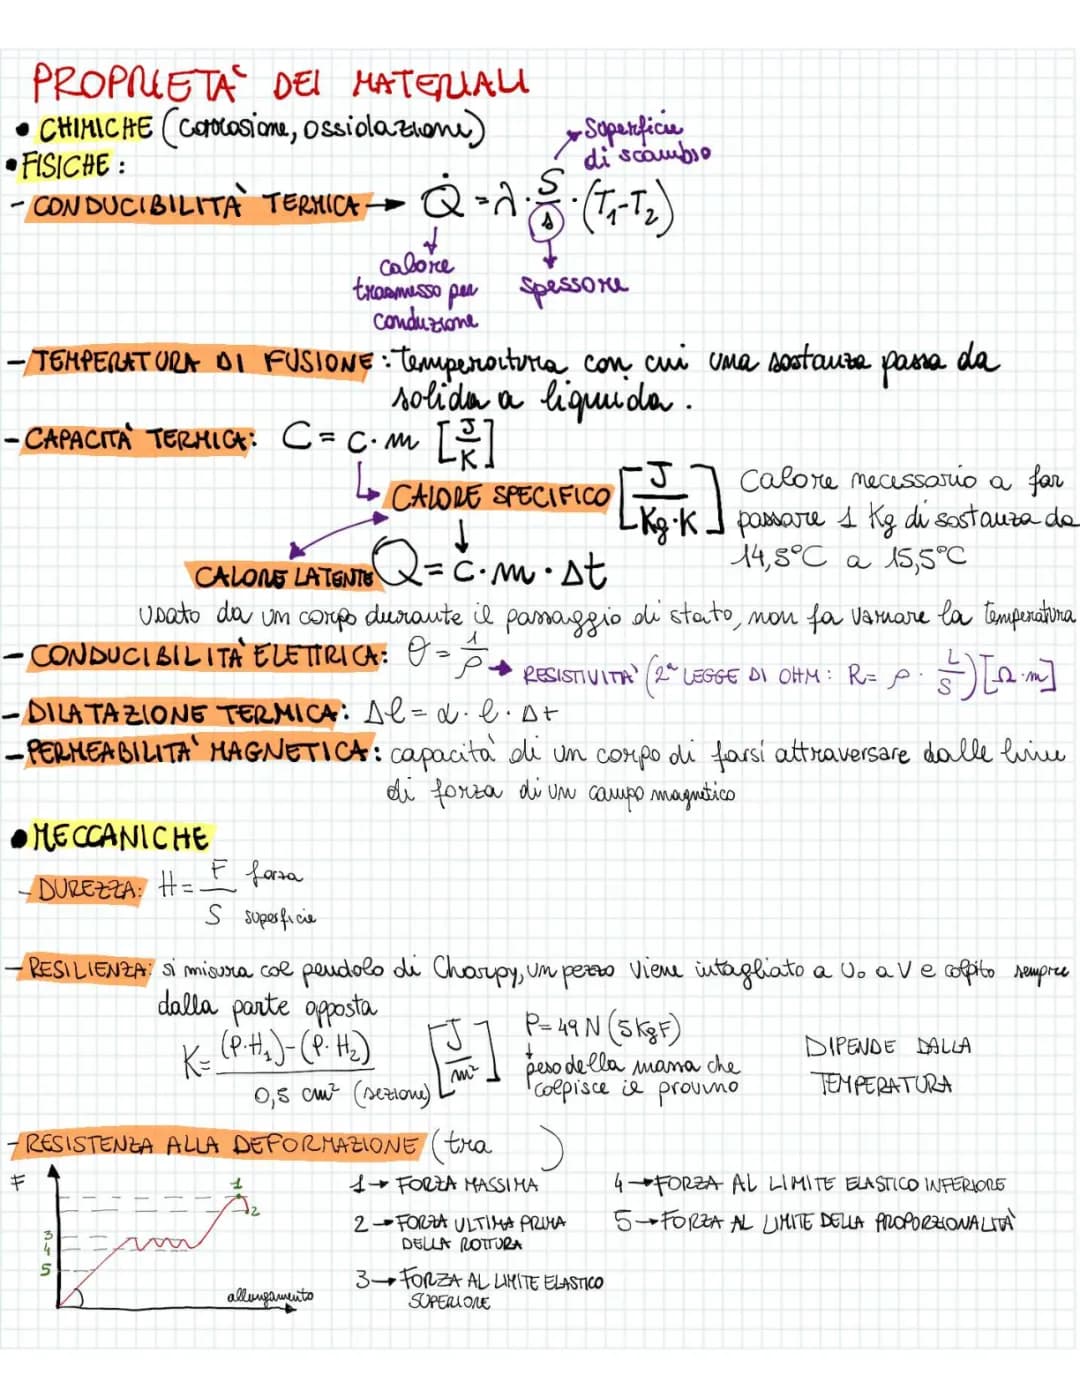 PROPRIETA' DEI MATERIALI
• CHIMICHE (corrosione, ossidazione)
Superficie
di scambio
• FISICHE :
- CONDUCIBILITÀ TERMICA → Q̇ = λ · S/s · (T₁-T₂)
calore
trasmesso per
conduzione
spessore
- TEMPERATURA DI FUSIONE : temperatura con cui una sostanza passa da
solida a liquida .
- CAPACITÀ TERMICA: C = c · m [J/K]
CALORE SPECIFICO [J/Kg·K] Calore necessario a far
passare 1 Kg di sostanza da
14,5°C a 15,5°C
CALORE LATENTE Q = c · m · Δt
usato da un corpo durante il passaggio di stato, non fa variare la temperatura
- CONDUCIBILITÀ ELETTRICA: σ = 1/ρ → RESISTIVITA' (2ª LEGGE DI OHM : R = ρ · L/S) [Ω·m]
- DILATAZIONE TERMICA: Δl = α · l · Δt
- PERMEABILITA' MAGNETICA : capacità di un corpo di farsi attraversare dalle linee
di forza di un campo magnetico
• MECCANICHE
- DUREZZA: H = F/S forza
superficie
- RESILIENZA: si misura col pendolo di Charpy, un pezzo viene intagliato a U o a V e colpito sempre
dalla parte opposta
K = (P·H₁)-(P·H₂) / 0,5 cm² (sezione) [J/m²]
P = 49 N (5 KgF)
peso della massa che
colpisce il provino
DIPENDE DALLA
TEMPERATURA
- RESISTENZA ALLA DEFORMAZIONE (tra )
F
1
2
3
4
5
allungamento
1 → FORZA MASSIMA
2 → FORZA ULTIMA PRIMA
DELLA ROTTURA
3 → FORZA AL LIMITE ELASTICO
SUPERIORE
4 → FORZA AL LIMITE ELASTICO INFERIORE
5 → FORZA AL LIMITE DELLA PROPORZIONALITÀ